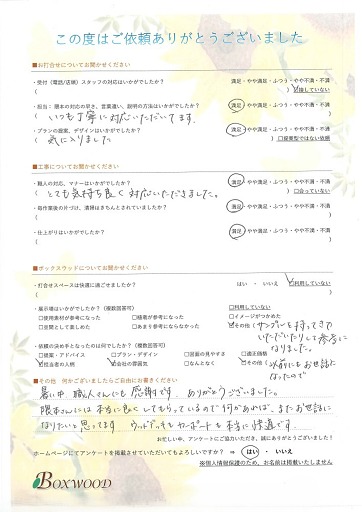 この度はご依頼ありがとうございました
■お打合せについてお聞かせください
・受付（電話/店頭）スタッフの対応はいかがでしたか？ 満足・やや満足・ふつう・やや不満・不満
（ ）☑接していない
・担当：隈本の対応の早さ、言葉遣い、説明の方法はいかがでしたか？ 満足・やや満足・ふつう・やや不満・不満
（ いつも丁寧に対応いただいてます。 ）
・プランの提案、デザインはいかがでしたか？ 満足・やや満足・ふつう・やや不満・不満
（ 気に入りました ）□提案型ではない依頼
■工事についてお聞かせください
・職人の対応、マナーはいかがでしたか？ 満足・やや満足・ふつう・やや不満・不満
（ とても気持ち良く対応いただきました。 ）□会っていない
・毎作業後の片づけ、清掃はきちんとされていましたか？ 満足・やや満足・ふつう・やや不満・不満
（ ）
・仕上がりはいかがでしたか？ 満足・やや満足・ふつう・やや不満・不満
（ ）
■ボックスウッドについてお聞かせください
・打合せスペースは快適に過ごせましたか？ はい・いいえ ☑利用していない
（ ）
・展示場はいかがでしたか？（複数回答可） □利用していない
□使用素材が参考になった □植栽が参考になった □イメージがつかめた
□空間として楽しめた □あまり参考にならなかった ☑その他（サンプルを持ってきて
いただいたりして参考に
なりました。
・依頼の決め手となったのは何でしたか？（複数回答可）
□提案・アドバイス ☑プラン・デザイン □図面の見やすさ □適正価格
☑担当者の人柄 ☑会社の雰囲気 □なんとなく ☑その他（以前にもお世話に
なったので
■その他 何かございましたらご自由にお書きください
暑い中、職人さんにも感謝です。ありがとうございました。
隈本さんには本当に良くしてもらっているので何かあれば、またお世話に
なりたいと思ってます。ウッドデッキもカーポートも本当に快適です。
お忙しい中、アンケートにご協力いただき、誠にありがとうございました！
ホームページにてアンケートを掲載させていただいてもよろしいですか？ ⇒ はい・いいえ
※個人情報保護のため、お名前は掲載いたしません
BOXWOOD